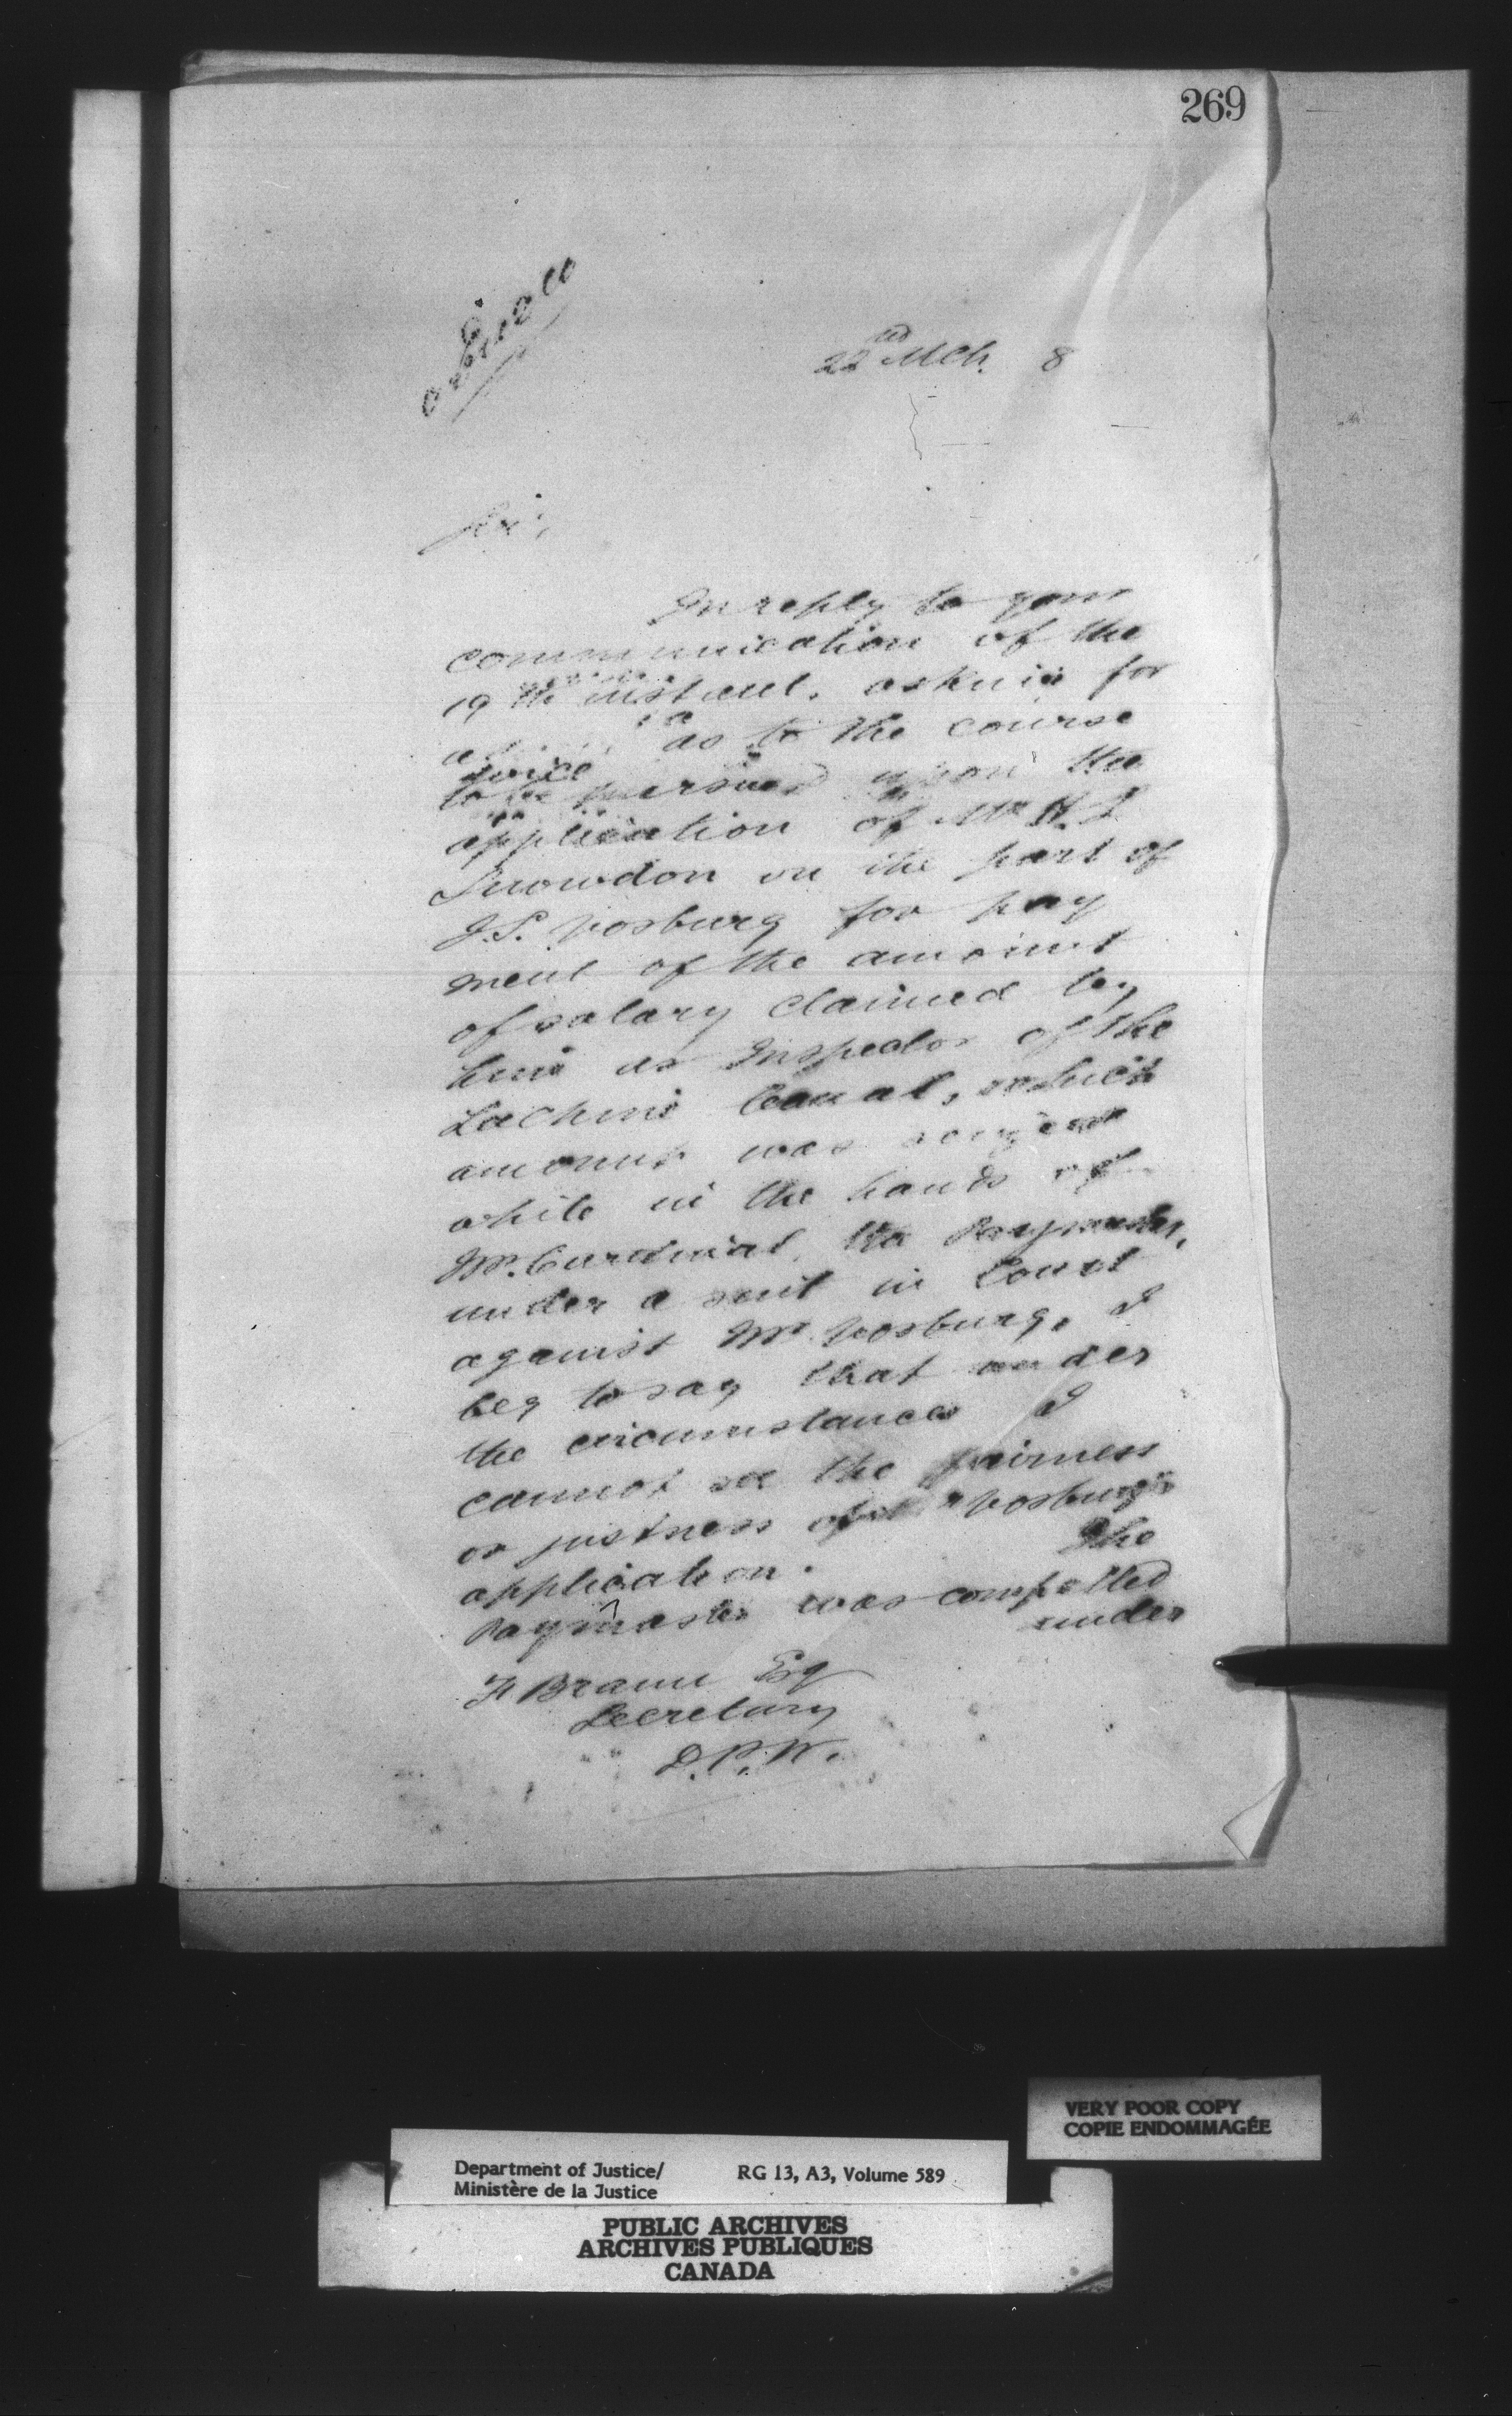 269
22nd Mch. 8
Sir,
In reply to your
communication of the
19th instant, asking for
advice as to the course
to be pursued upon the
application of Mr H. L
Snowdon on the part of
J.S. Vosburg for pay
ment of the amount
of salary claimed by
him as Inspector of the
Lachine Canal, which
amount was seized
while in the hands of
Mr. Cardinal, the Paymaster,
under a suit in Court
against Mr Vosburg, I
beg to say that under
the circumstances I
cannot see the fairness
or justness of Mr Vosburg's
application. The
Paymaster was compelled
under
F Braun Esq
Secretary
D.P.W.
VERY POOR COPY
COPIE ENDOMMAGÉE
Department of Justice/ RG 13, A3, Volume 589
Ministère de la Justice
PUBLIC ARCHIVES
ARCHIVES PUBLIQUES
CANADA